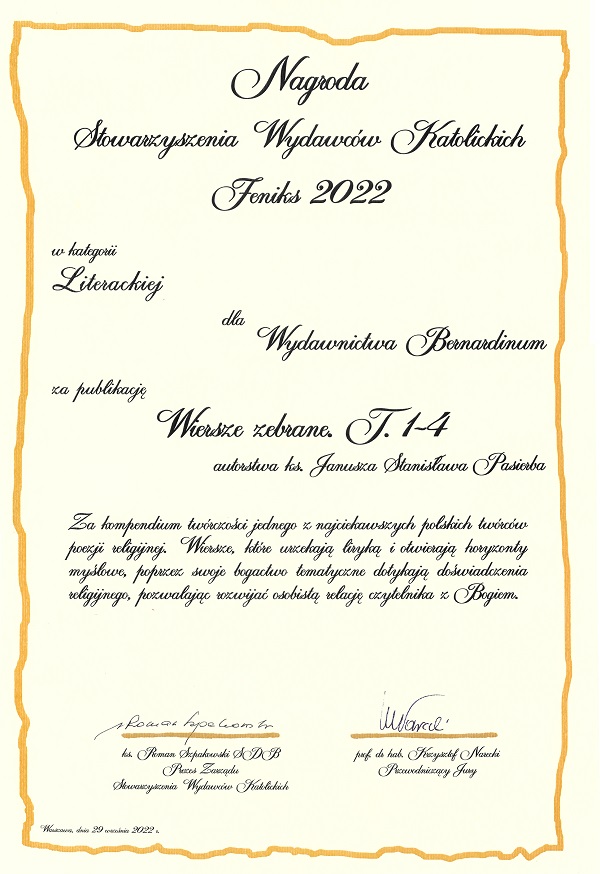 Nagroda
Stowarzyszenia Wydawców Katolickich
Feniks 2022
w kategorii
Literackiej
dla
Wydawnictwa Bernardinum
za publikację
Wiersze zebrane. T. 1-4
autorstwa ks. Janusza Stanisława Pasierba
Za kompendium twórczości jednego z najciekawszych polskich twórców
poezji religijnej. Wiersze, które urzekają liryką i otwierają horyzonty
myślowe, poprzez swoje bogactwo tematyczne dotykają doświadczenia
religijnego, pozwalając rozwijać osobistą relację czytelnika z Bogiem.
ks. Roman Szpakowski SDB
Prezes Zarządu
Stowarzyszenia Wydawców Katolickich
prof. dr hab. Krzysztof Narecki
Przewodniczący Jury
Warszawa, dnia 29 września 2022 r.